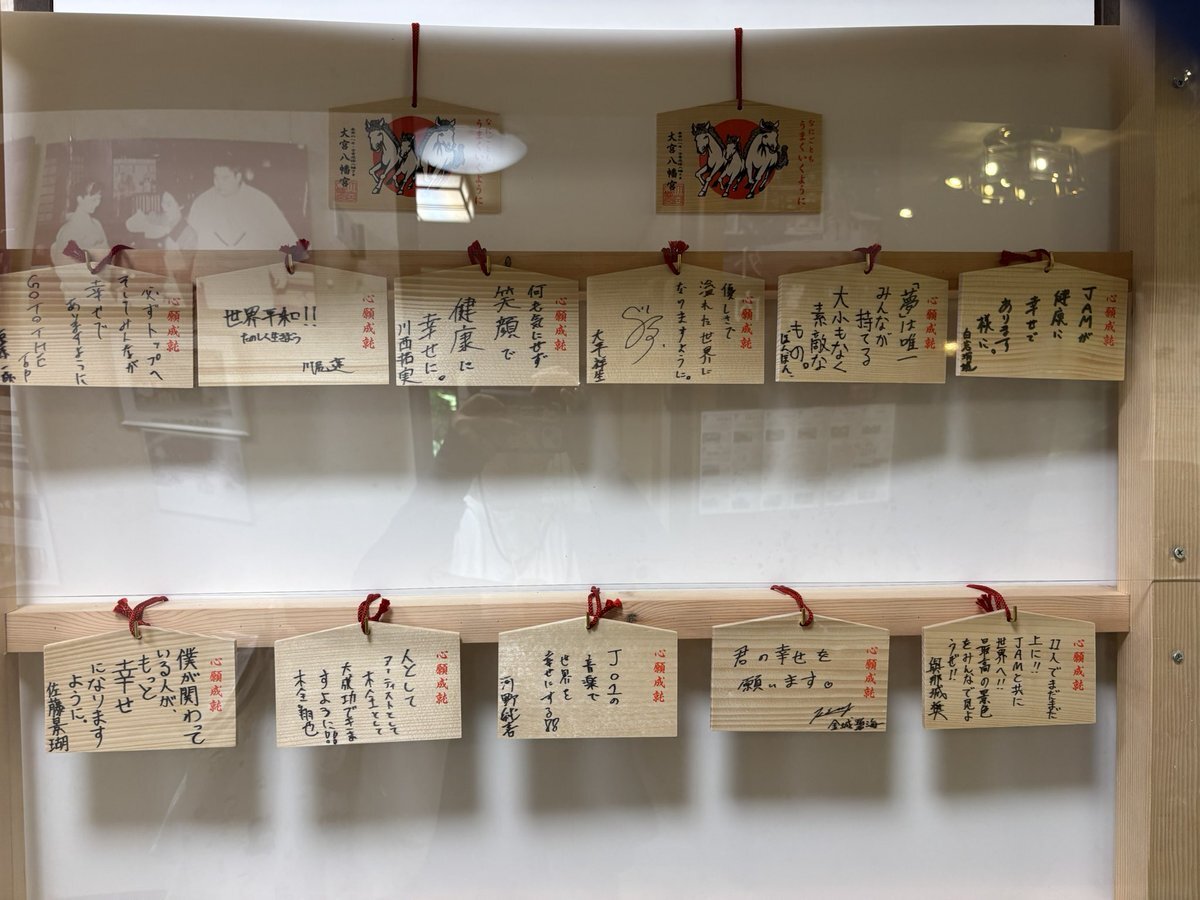 なにごとも
うまくいくように
大宮八幡宮
なにごとも
うまくいくように
大宮八幡宮
心願成就
必ずトップへ
そしてみんなが
幸せで
ありますように
GO TO THE
TOP
心願成就
世界平和!!
たのしく生きよう
川尻蓮
心願成就
何も気にせず
笑顔で
健康に
幸せに。
川西拓実
心願成就
優しさで
溢れた世界に
なりますように。
大平祥生
心願成就
「夢は唯一
みんなが
持てる
大小もなく
素敵な
もの。
心願成就
JAMが
健康に
幸せで
あります
様に。
白岩瑠姫
心願成就
僕が関わって
いる人が、
もっと
幸せ
になります
ように。
佐藤景瑚
心願成就
人として
アーティストとして
木全として
大成功できま
すように!!
木全翔也
心願成就
JO1の
音楽で
世界を
幸せにする
河野純喜
心願成就
君の幸せを
願います。
金城碧海
心願成就
11人でまだまだ
上に!!
JAMと共に
世界へ!!
最高の景色
をみんなで見よ
うぜ!!
與那城奨